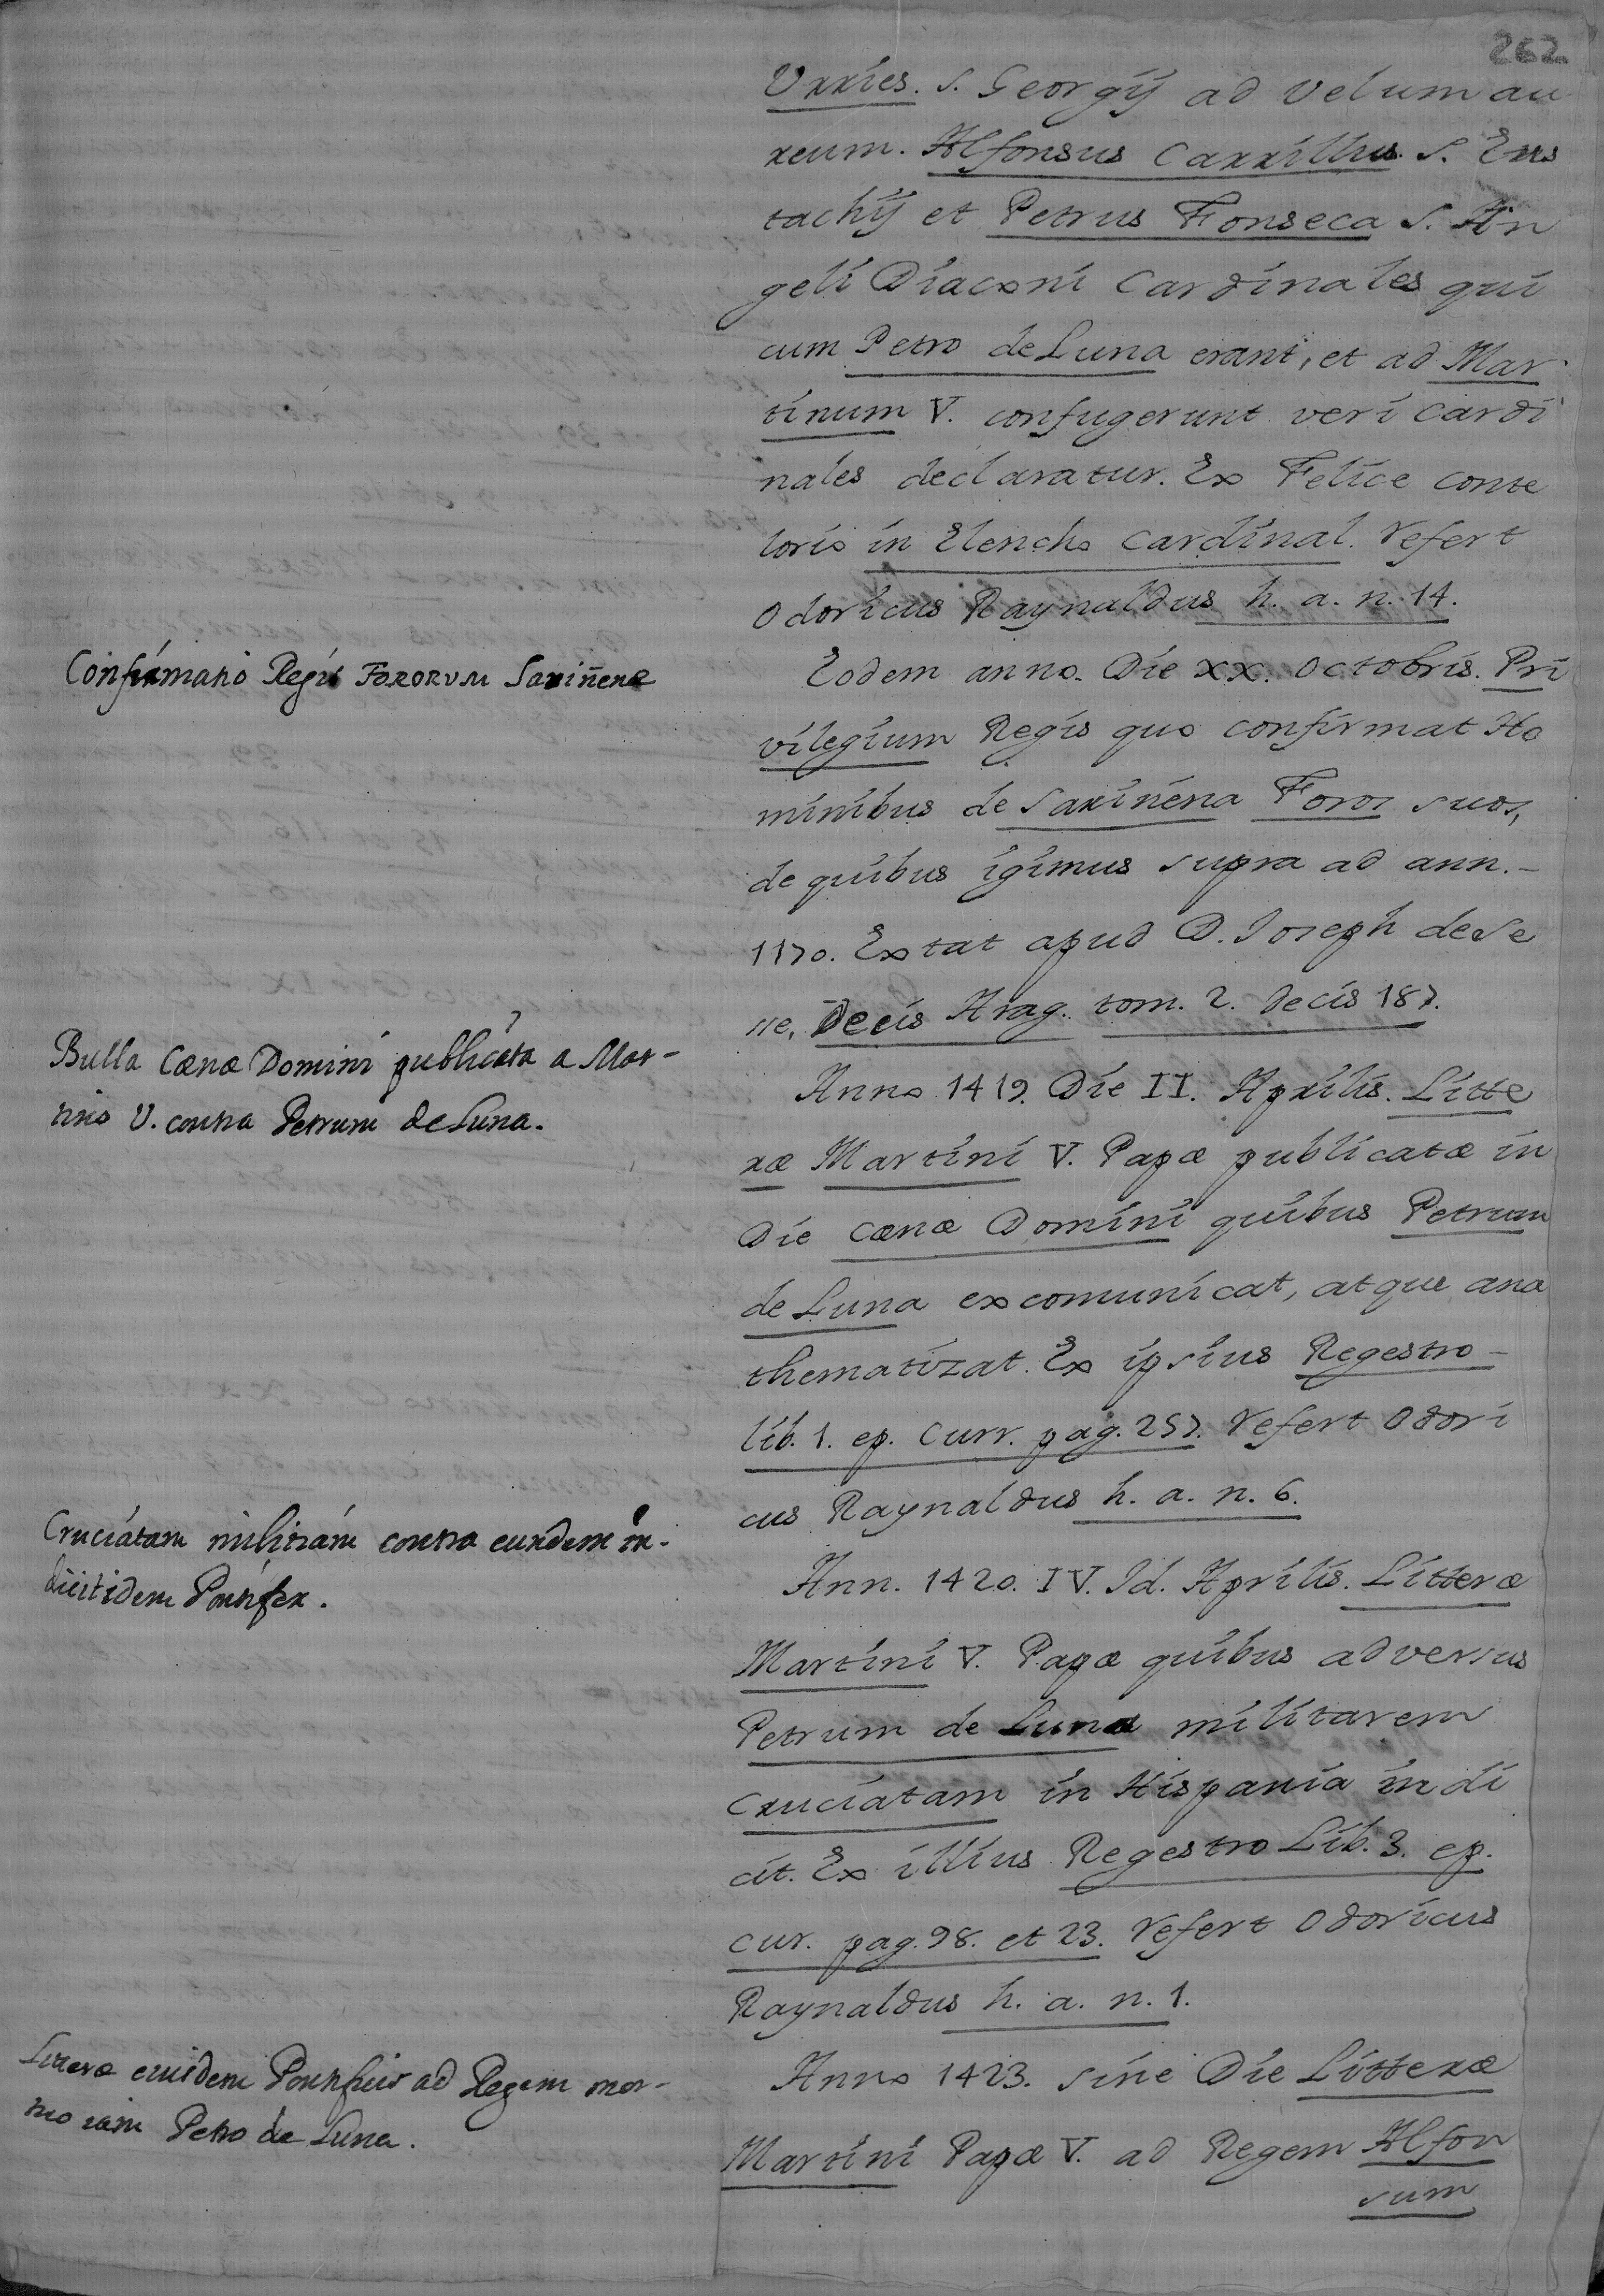 262
Urries. S. Georgÿ ad velum au
reum. Alfonsus Carrillus. S. Eus
tachÿ et Petrus Fonseca S. An
geli Diaconi Cardinales qui
cum Petro de Luna erant, et ad Mar
tinum V. confugerunt veri Cardi
nales declaratur. Ex Felice Conte
lorio in Elencho Cardinal. refert
Odoricus Raynaldus h. a. n. 14.
Confirmatio Regis FORORUM Sariñenæ
Eodem anno. Die XX. Octobris. Pri
vilegium Regis quo confirmat Ho
minibus de Sariñena Foros suos,
de quibus igimus supra ad ann.-
1170. Extat apud D. Joseph de Se
sse, Decis Arag. tom. 2. decis 187.
Bulla Cænæ Domini publicata a Mar-
tino V. contra Petrum de Luna.
Anno 1419. Die II. Aprilis. Litte
ræ Martini V. Papæ publicatæ in
Die Cænæ Domini quibus Petrum
de Luna excomunicat, atque ana
thematizat. Ex ipsius Regestro-
lib. 1. ep. Curr. pag. 257. refert Odori
cus Raynaldus h. a. n. 6.
Cruciatam militiam contra eundem in-
dicit idem Pontifex.
Ann. 1420. IV. Id. Aprilis. Litteræ
Martini V. Papæ quibus adversus
Petrum de Luna militarem
Cruciatam in Hispania indi
cit. Ex illius Regestro Lib. 3. ep.
cur. pag. 98. et 23. refert Odoricus
Raynaldus h. a. n. 1.
Litteræ eiusdem Pontificis ad Regem mor-
tuo iam Petro de Luna.
Anno 1423. sine Die Litteræ
Martini Papæ V. ad Regem Alfon
sum